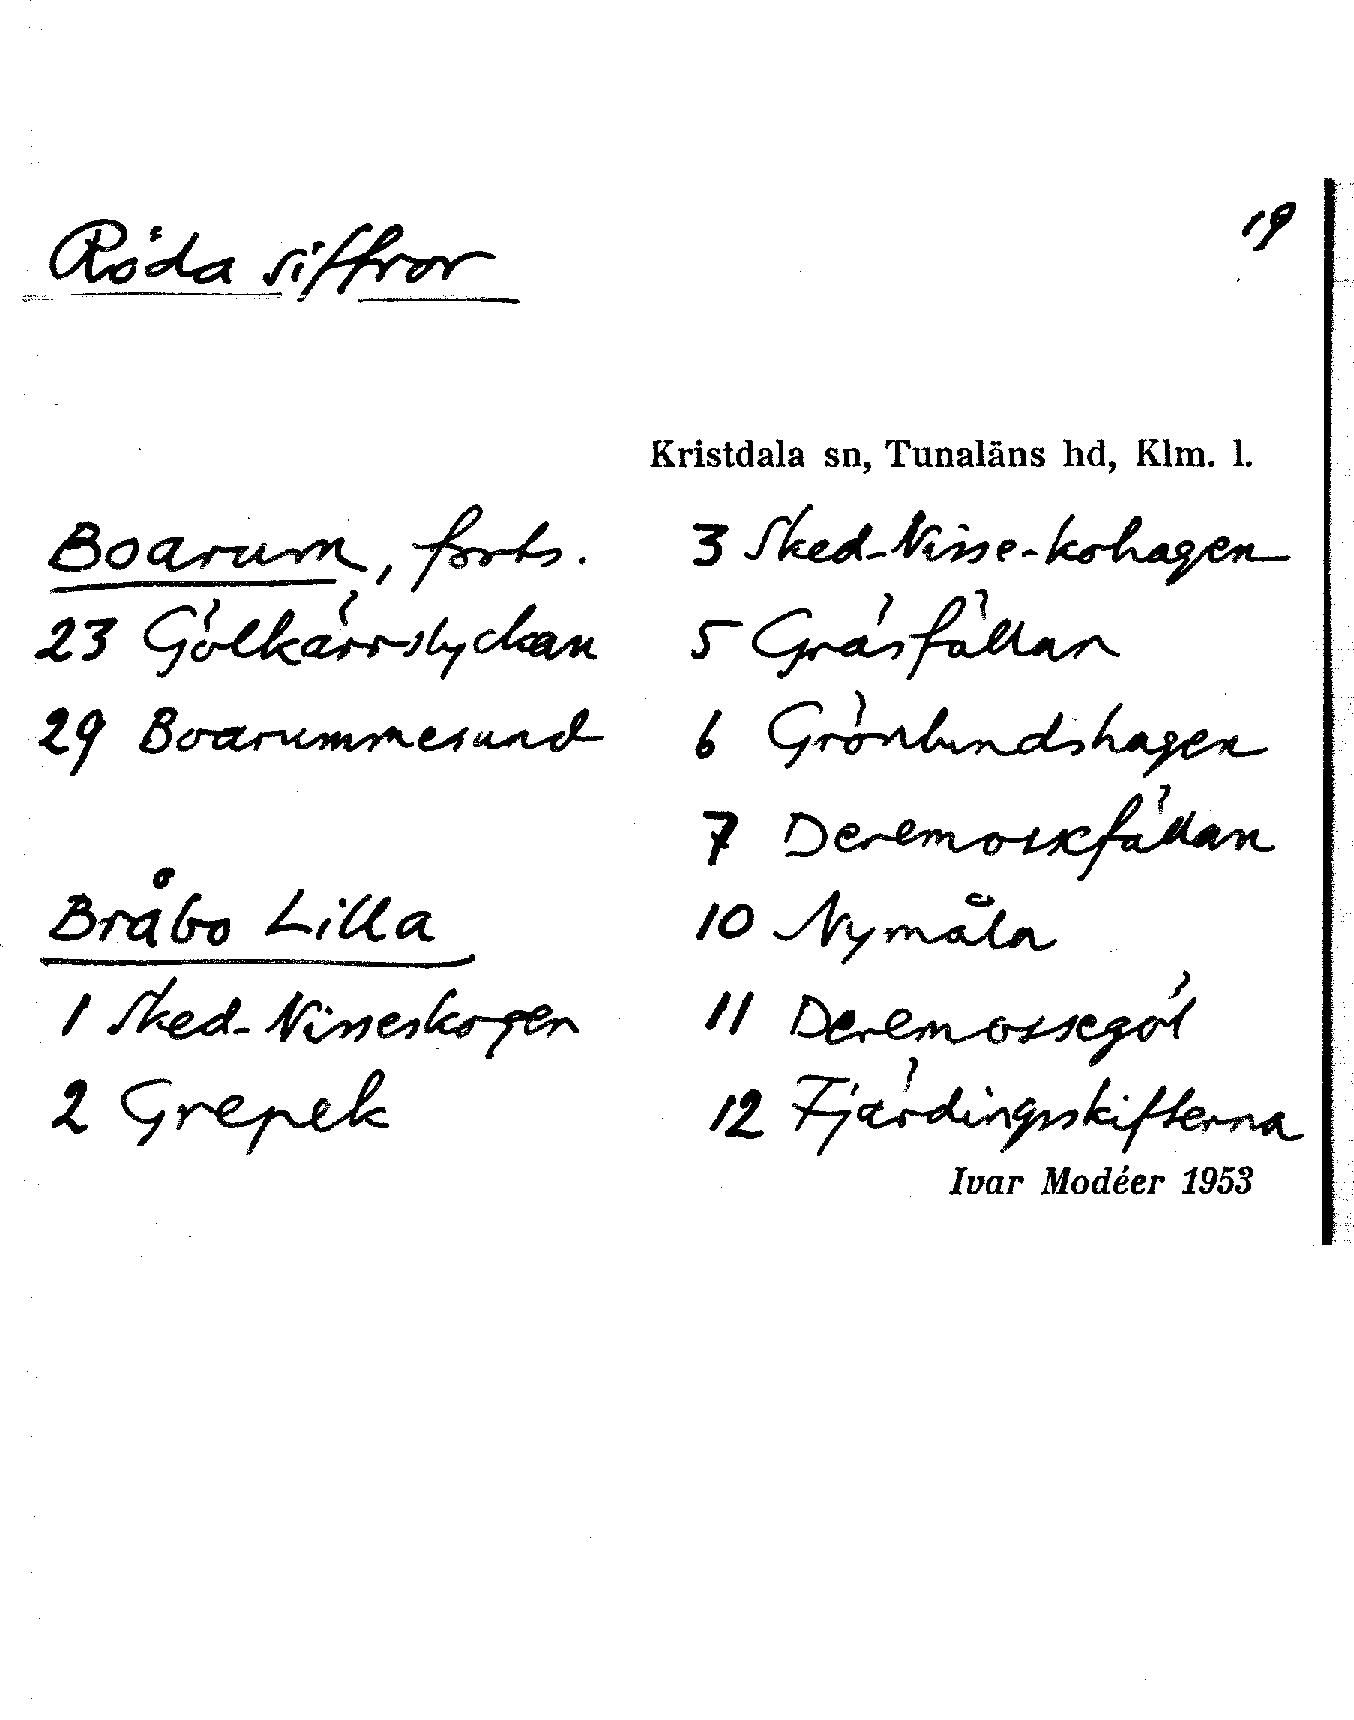 19
Röda siffror
Kristdala sn, Tunaläns hd, Klm. l.
Boarum, forts.
23 Gölkärrslyckan
29 Boarummesund
Bråbo Lilla
1 Sked-Nisseskogen
2 Grepek
3 Sked-Nisse-kohagen
5 Gräsfällan
6 Grönlundshagen
7 Deremossefällan
10 Nymåla
11 Deremossegöl
12 Fjärdingsskifterna
Ivar Modéer 1953